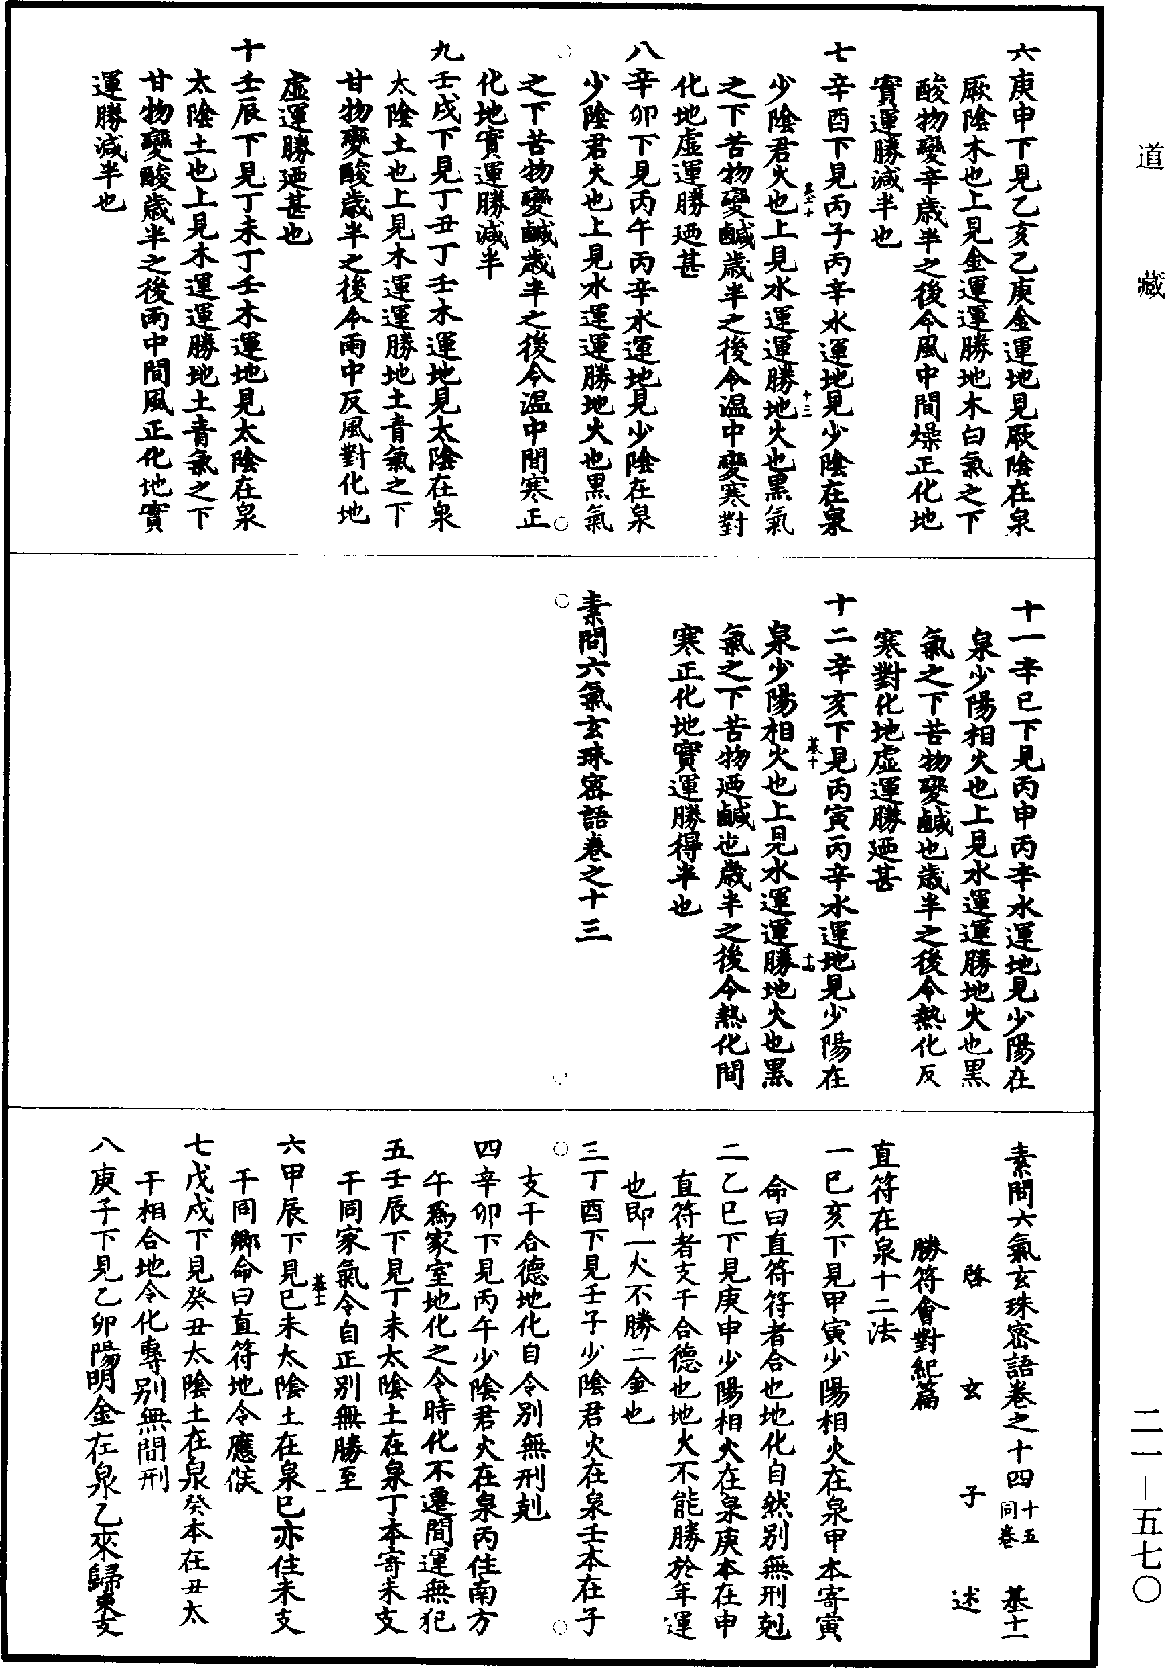 道藏
六庚申下見乙亥乙庚金運地見厥陰在泉
厥陰木也上見金運運勝地木白氣之下
酸物變辛歲半之後令風中間燥正化地
實運勝減半也
七辛酉下見丙子丙辛水運地見少陰在泉
少陰君火也上見水運運勝地火也黑氣
之下苦物變鹹歲半之後令温中變寒對
化地虛運勝廼甚
八辛卯下見丙午丙辛水運地見少陰在泉
少陰君火也上見水運運勝地火也黑氣
之下苦物變鹹歲半之後令温中間寒正
化地實運勝減半
九壬戌下見丁丑丁壬木運地見太陰在泉
太陰土也上見木運運勝地土青氣之下
甘物變酸歲半之後令雨中反風對化地
虛運勝廼甚也
十壬辰下見丁未丁壬木運地見太陰在泉
太陰土也上見木運運勝地土青氣之下
甘物變酸歲半之後雨中間風正化地實
運勝減半也
十一辛巳下見丙申丙辛水運地見少陽在
泉少陽相火也上見水運運勝地火也黑
氣之下苦物變鹹也歲半之後令熱化反
寒對化地虛運勝廼甚
十二辛亥下見丙寅丙辛水運地見少陽在
泉少陽相火也上見水運運勝地火也黑
氣之下苦物廼鹹也歲半之後令熱化間
寒正化地實運勝得半也
素問六氣玄珠密語卷之十三
素問六氣玄珠密語卷之十四 十五同卷 基十一
啓玄子述
勝符會對紀篇
直符在泉十二法
一巳亥下見甲寅少陽相火在泉甲本寄寅
命曰直符符者合也地化自然別無刑剋
二乙巳下見庚申少陽相火在泉庚本在申
直符者支干合德也地火不能勝於年運
也即一火不勝二金也
三丁酉下見壬子少陰君火在泉壬本在子
支干合德地化自令別無刑剋
四辛卯下見丙午少陰君火在泉丙住南方
午爲家室地化之令時化不遷間運無犯
五壬辰下見丁未太陰土在泉丁本寄未支
干同家氣令自正別無勝至
六甲辰下見巳未太陰土在泉巳亦住未支
干同鄉命曰直符地令應候
七戊戌下見癸丑太陰土在泉癸本在丑太
干相合地令化專別無間刑
八庚子下見乙卯陽明金在泉乙來歸東支
基十
十三
基十
十四
基十一
一
二一—五七〇